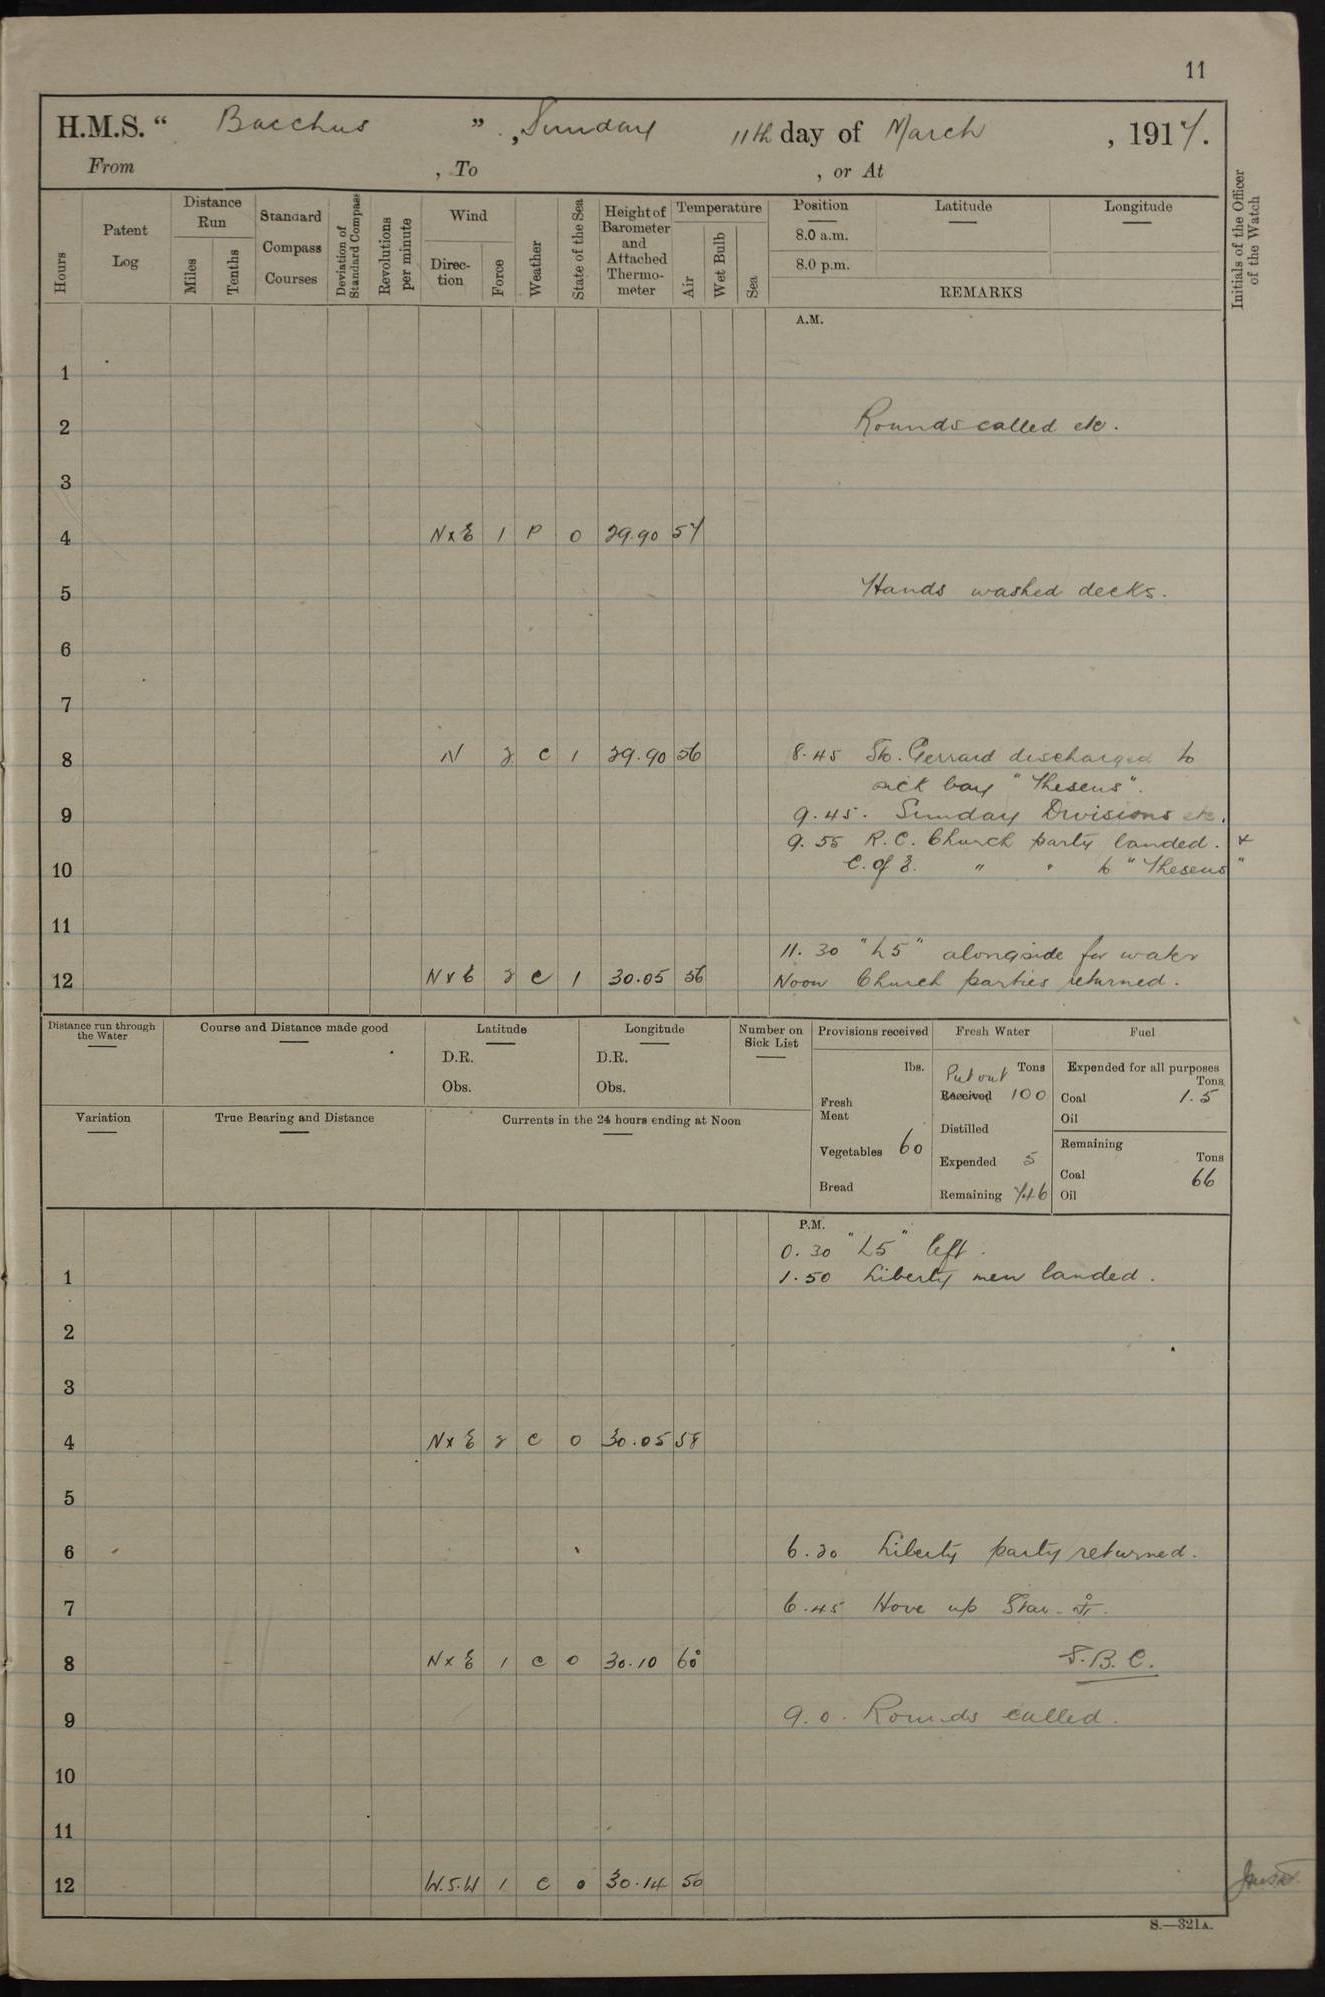 11
H.M.S. " Bacchus " , Sunday 11th day of March , 1917.
From , To , or At
Hours
Patent Log
Distance Run
Miles
Tenths
Standard Compass Courses
Deviation of Standard Compass
Revolutions per minute
Wind
Direc-tion
Force
Weather
State of the Sea
Height of Barometer and Attached Thermo-meter
Temperature
Air
Wet Bulb
Sea
Position
8.0 a.m.
8.0 p.m.
Latitude
Longitude
REMARKS
Initials of the Officer of the Watch
A.M.
1
2 Rounds called etc.
3
4 N x E 1 P 0 29.90 57
5 Hands washed decks.
6
7
8 N 2 c 1 29.90 56 8.45 Sto. Gerrard discharged to
sick bay "Theseus".
9 9.45. Sunday Divisions etc.
9.55 R.C. Church party landed. +
10 C. of E. " " to "Theseus"
11
11.30 "L5" alongside for water
12 N x E 2 c 1 30.05 56 Noon Church parties returned.
Distance run through the Water
Course and Distance made good
Latitude
D.R.
Obs.
Longitude
D.R.
Obs.
Number on Sick List
Provisions received
lbs.
Fresh Meat
Vegetables 60
Bread
Fresh Water
Tons
Put out
Received 100
Distilled
Expended 5
Remaining 746
Fuel
Expended for all purposes
Tons
Coal 1.5
Oil
Remaining
Tons
Coal 66
Oil
Variation
True Bearing and Distance
Currents in the 24 hours ending at Noon
P.M.
0.30 "L5" left.
1 1.50 Liberty men landed.
2
3
4 N x E 2 c 0 30.05 58
5
6 6.20 Liberty party returned.
7 6.45 Hove up Star.
8 N x E 1 c 0 30.10 60° S.B.C.
9 9.0. Rounds called.
10
11
12 W.S.W 1 c 0 30.14 50
S.—321A.